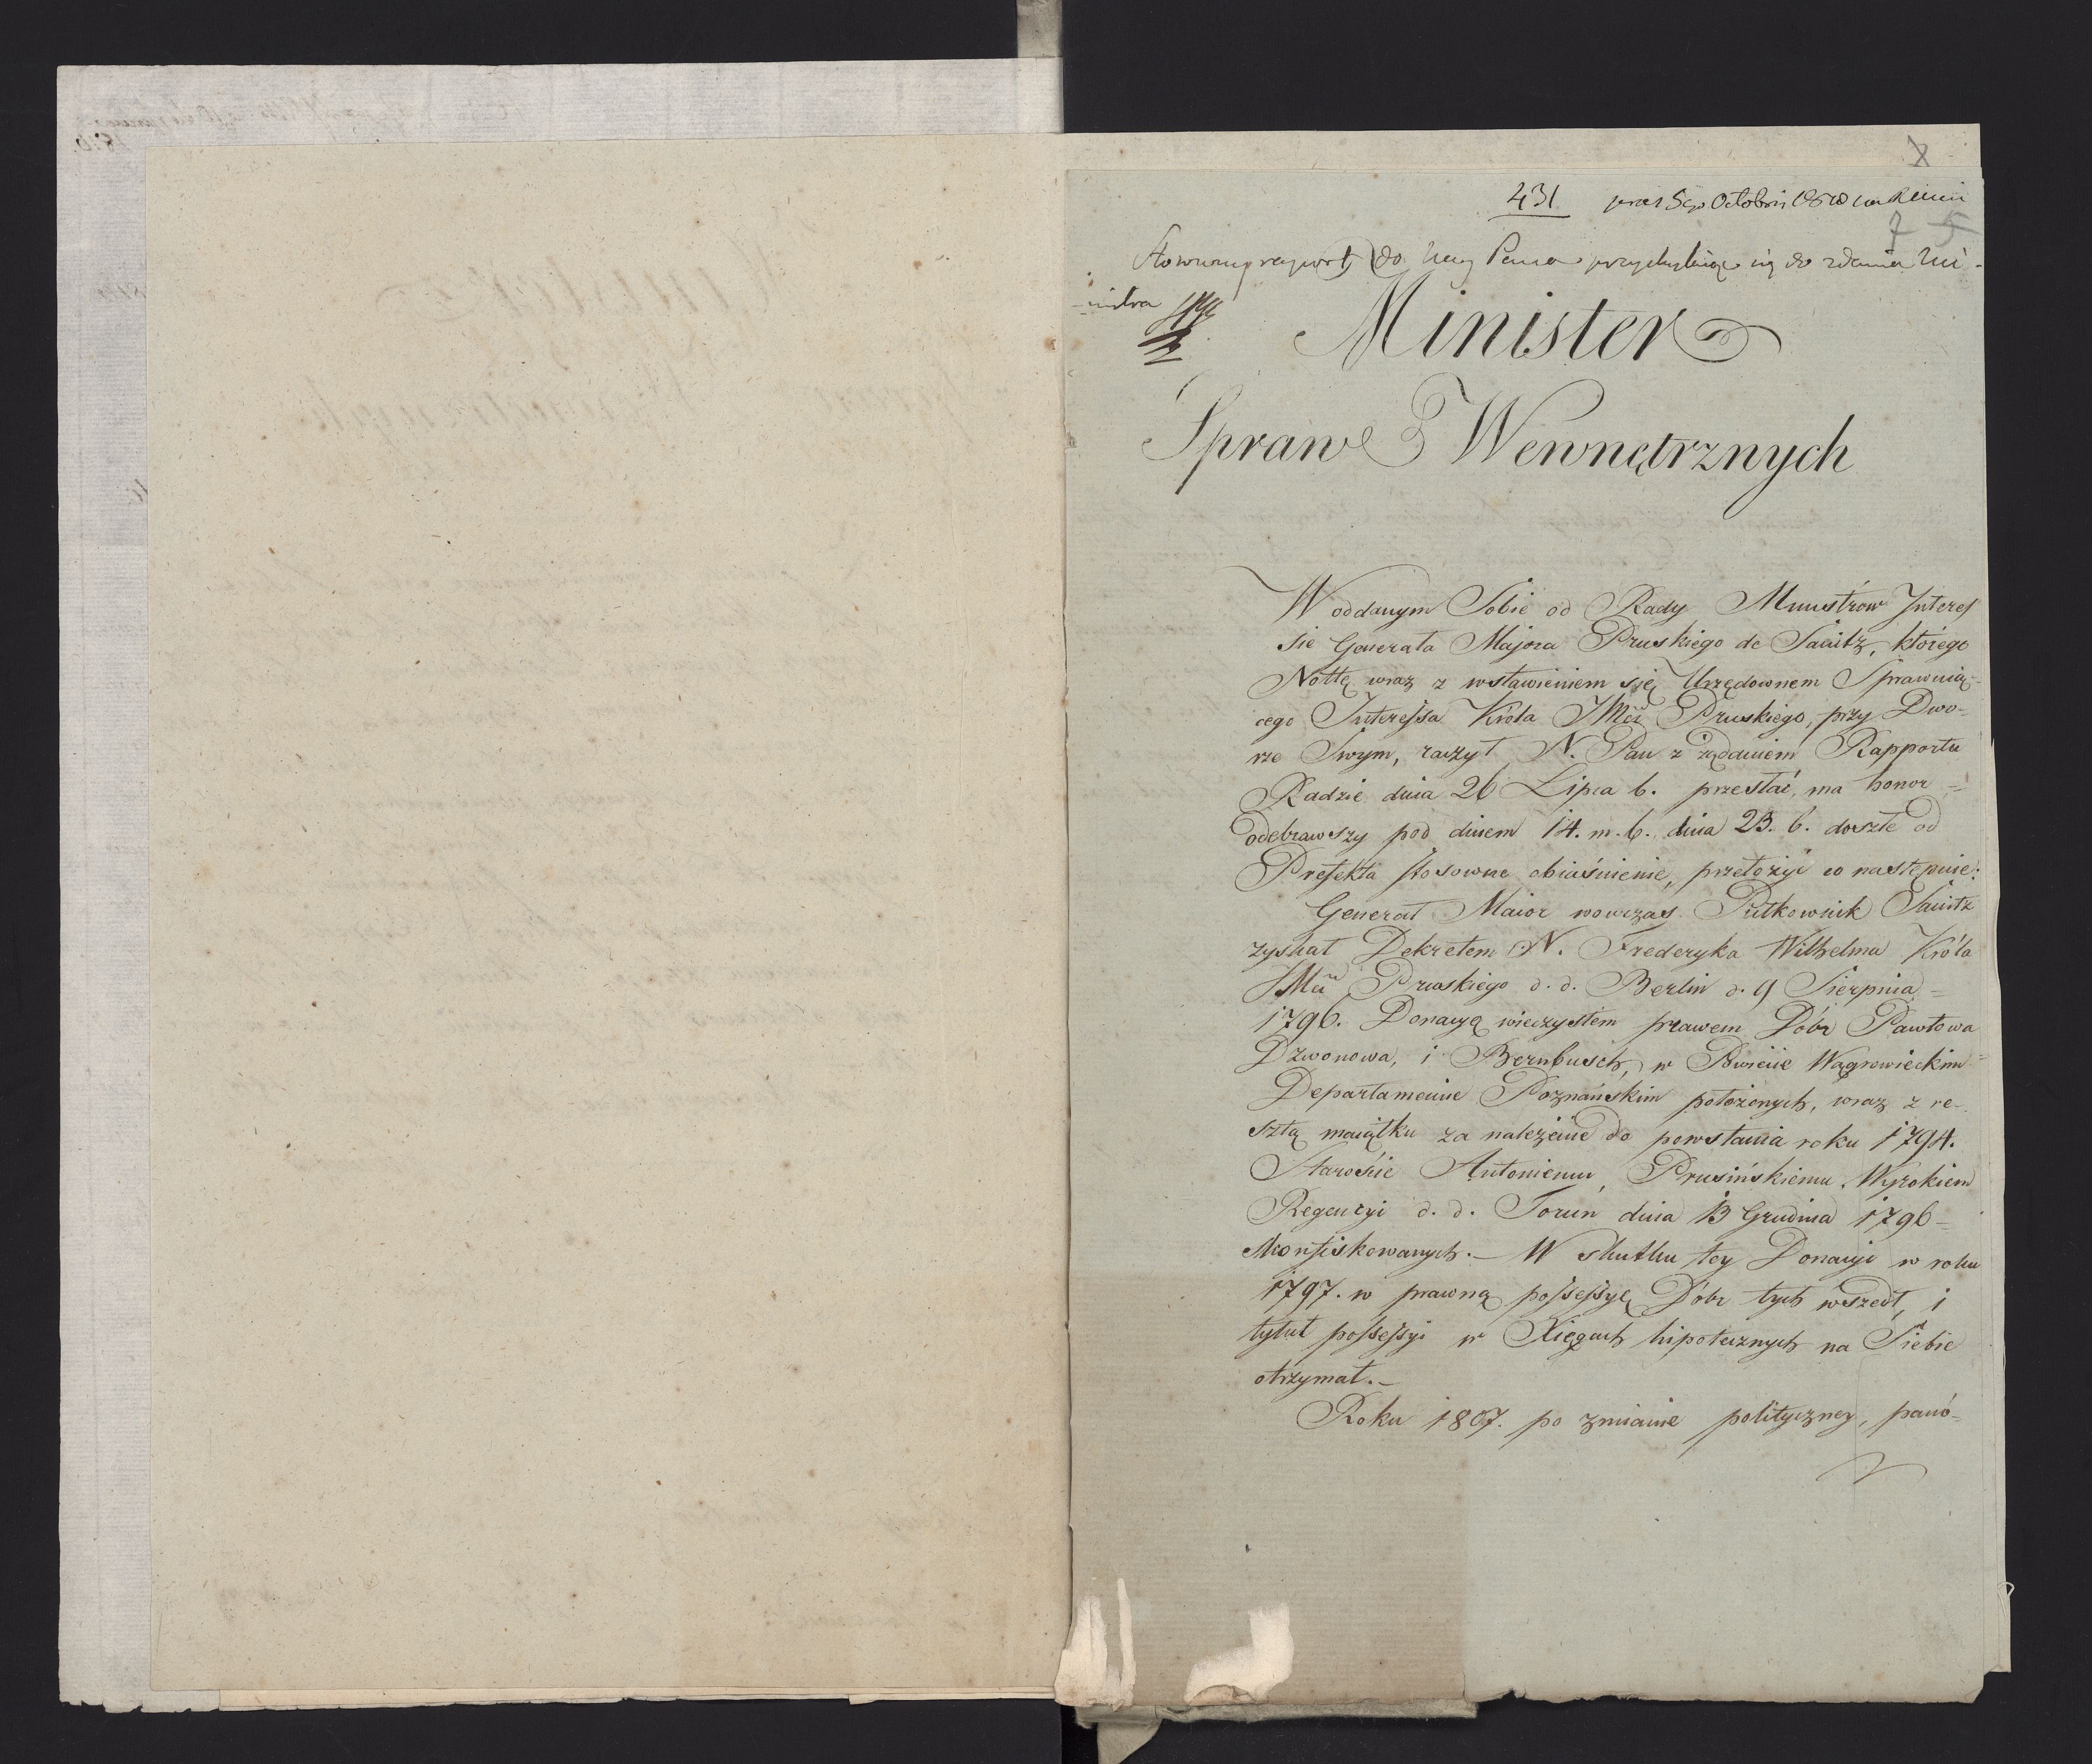 431 Octobris
Stosowny raport do Nay Pana przychylaiąc się do zdania Mi-
-nistra
Minister
Spraw Wewnętrznych
W oddanym Sobie od Rady Ministrow Interes
sie Generała Majora Pruskiego de Sanitz, ktorego
Nottę wraz z wstawieniem się Urzędownem Sprawuią-
cego Interessa Króla JMci Pruskiego, przy Dwo-
rze Swym, raczył N. Pan z rządaniem Rapportu
Radzie dnia 26 Lipca b. przesłać, ma honor =
odebrawszy pod dniem 14. m. b. dnia 23. b. doszłe od
Prefekta stosowne obiaśnienie, przełożyć co następuie:
Generał Maior wowczas Pułkownik Sanitz
zyskał Dekretem N. Frederyka Wilhelma Króla
JMci Pruskiego d. d. Berlin d. 9 Sierpnia =
1796. Donacyą wieczystem prawem Dóbr Pawłowa
Dzwonowa, i Bernbusch, w Powiecie Wągrowieckim =
Departamencie Poznańskim położonych, wraz z re-
sztą maiątku za należenie do powstania roku 1794.
Staroście Antoniemu Prusińskiemu, Wyrokiem
Regencyi d. d. Toruń dnia 13 Grudnia 1796 =
skonfiskowanych. — W skutku tey Donacyi w roku
1797. w prawną possessyę Dóbr tych wszedł, i
tytuł possessyi w Xięgach hipotecznych na Siebie
otrzymał. —
Roku 1807. po zmianie polityczney, panó-